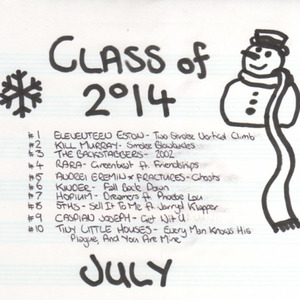 CLASS of
2014
#1 ELEVENTEEN ESTON - Two Singles Vertical Climb
#2 KILL MURRAY - Smoke Blowbacks
#3 THE BACKSTABBERS - 2002
#4 RARA - Greenbelt ft. Friendships
#5 ANDREI EREMIN x FRACTURES - Ghosts
#6 KINDER - Fall Back Down
#7 HOPIUM - Dreamers ft Phoebe Lou
#8 5THS - Sell It To Me ft Jarryd Klapper
#9 CASPIAN JOSEPH - Get With U
#10 TINY LITTLE HOUSES - Every Man Knows His
Plague, And You Are Mine
JULY